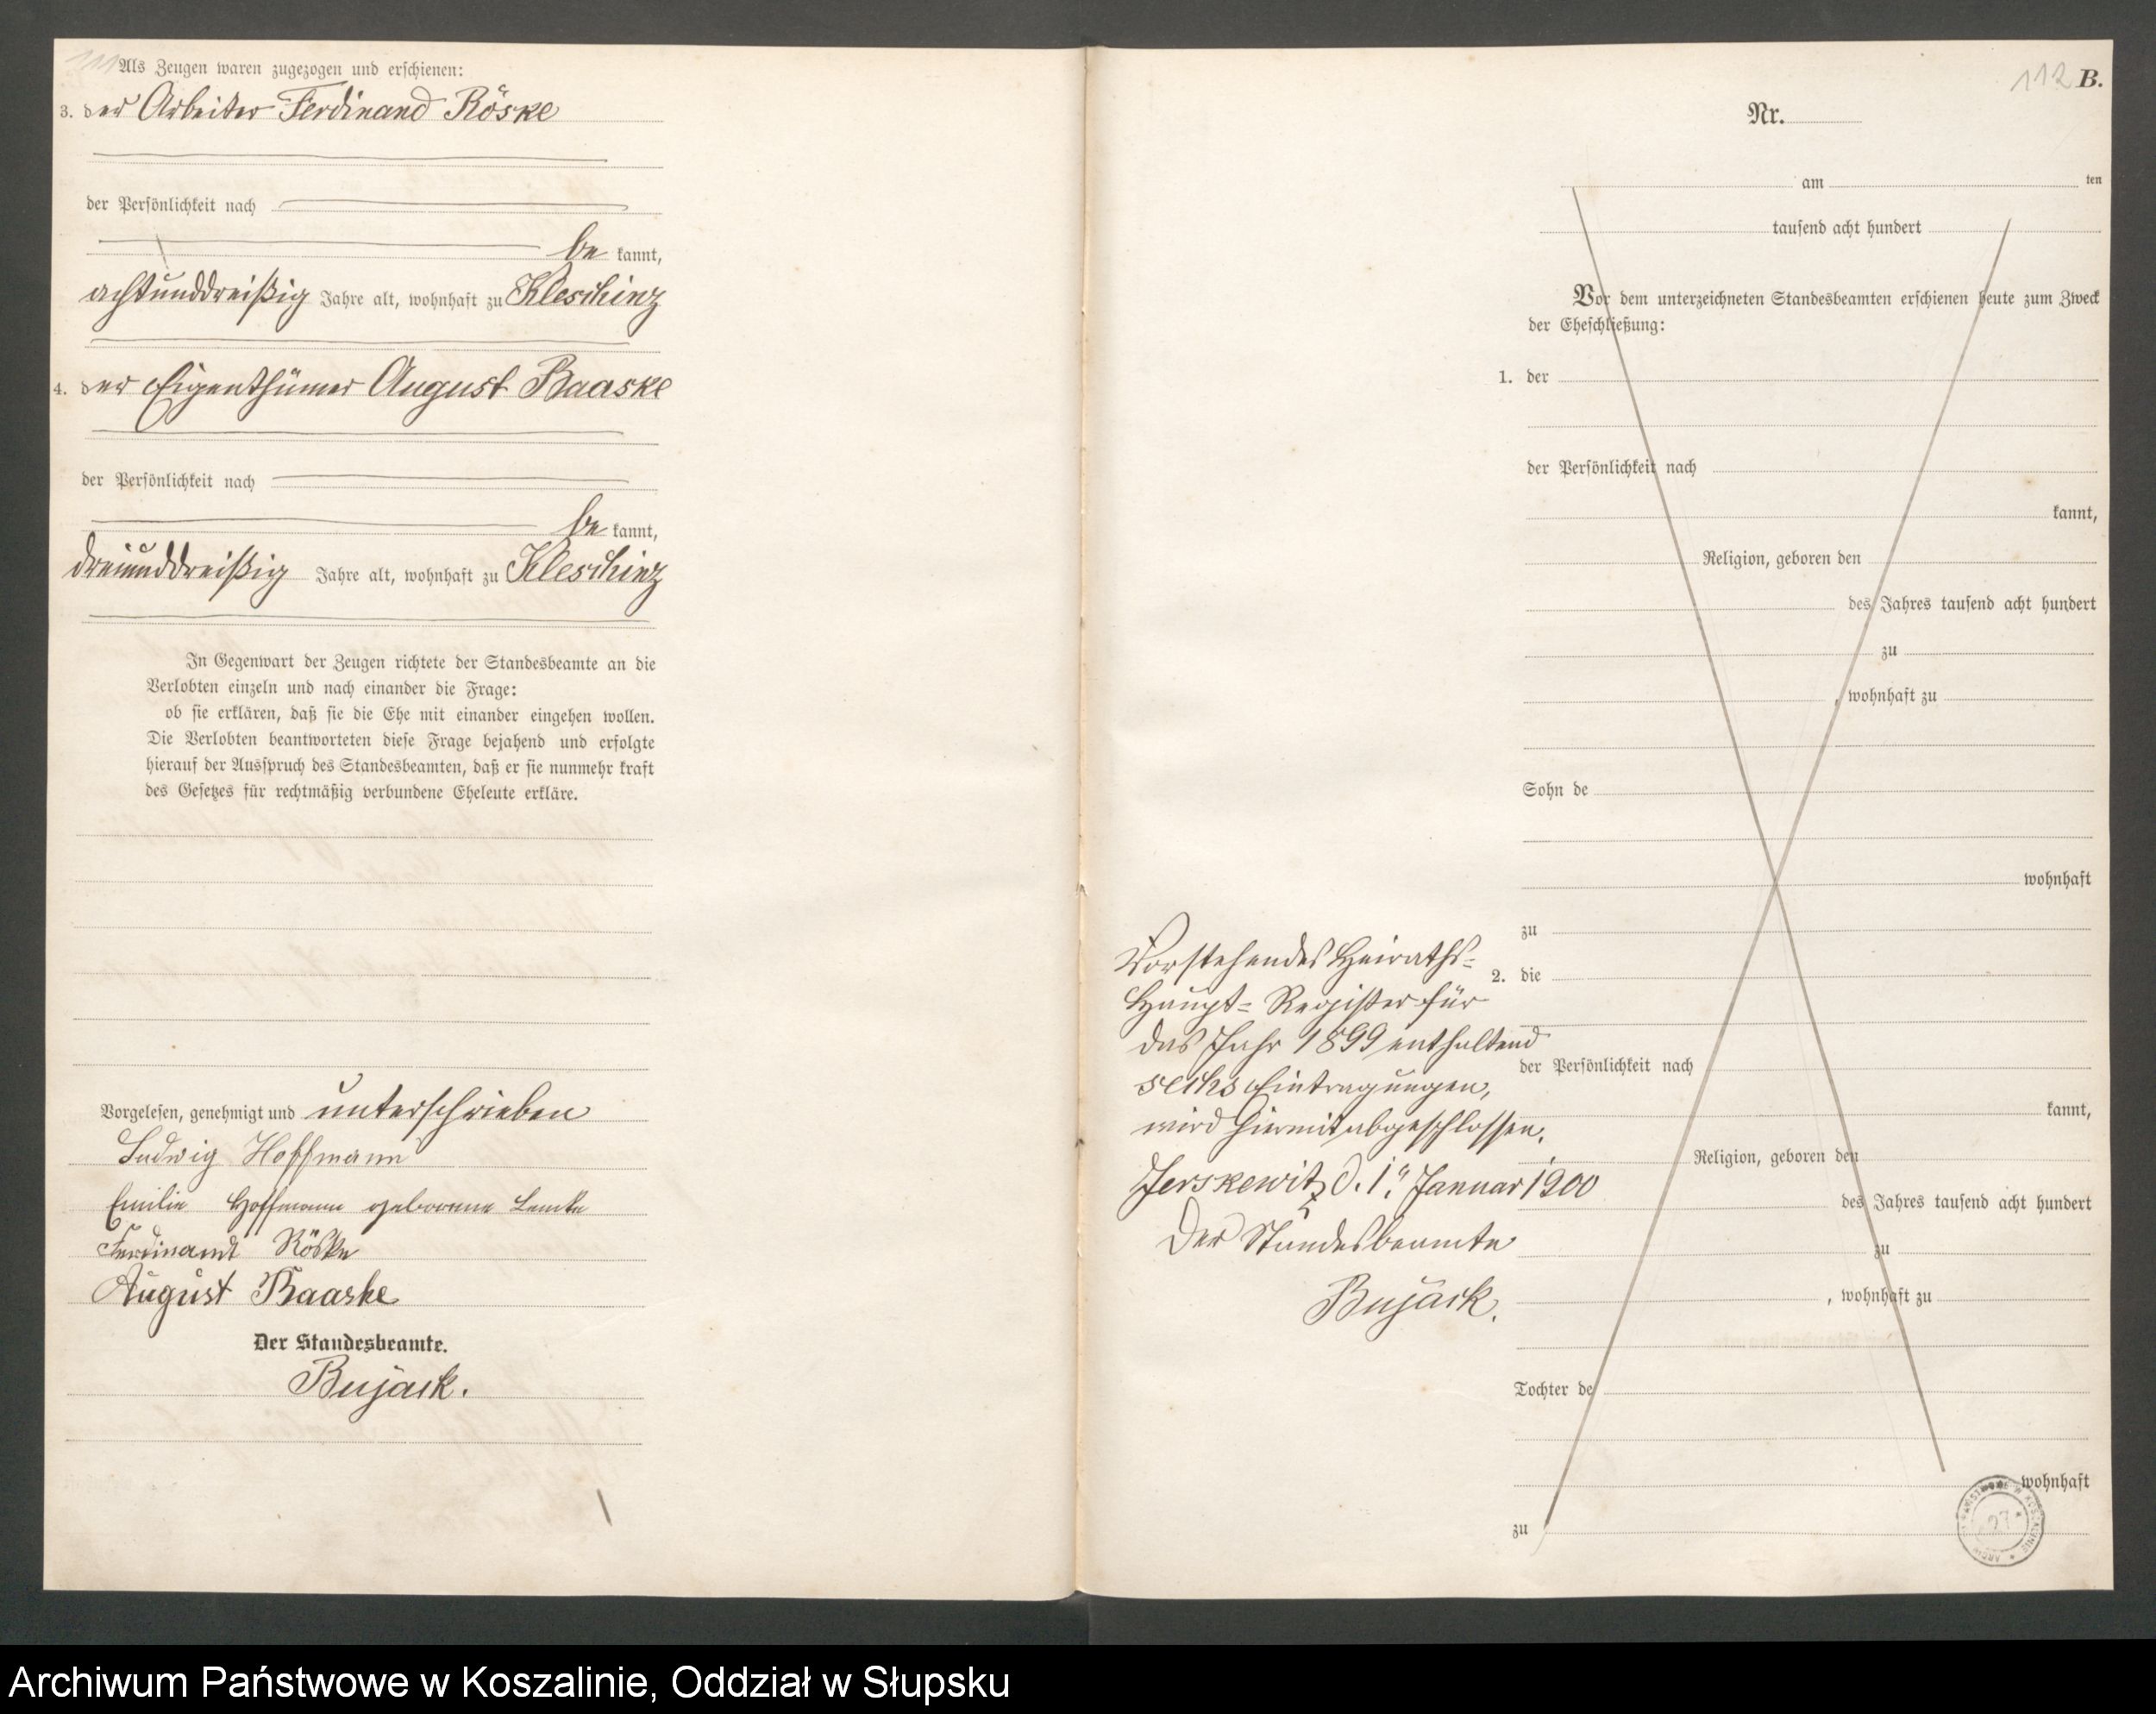 111
Als Zeugen waren zugezogen und erschienen:
3. der Arbeiter Ferdinand Röske
der Persönlichkeit nach
be kannt,
achtunddreißig Jahre alt, wohnhaft zu Kleschinz
4. der Eigenthümer August Baaske
der Persönlichkeit nach
be kannt,
dreiunddreißig Jahre alt, wohnhaft zu Kleschinz
In Gegenwart der Zeugen richtete der Standesbeamte an die
Verlobten einzeln und nach einander die Frage:
ob sie erklären, daß sie die Ehe mit einander eingehen wollen.
Die Verlobten beantworteten diese Frage bejahend und erfolgte
hierauf der Ausspruch des Standesbeamten, daß er sie nunmehr kraft
des Gesetzes für rechtmäßig verbundene Eheleute erkläre.
Vorgelesen, genehmigt und unterschrieben
Ludwig Hoffmann
Emilie Hoffmann geborene Lemke
Ferdinandt Röske
August Baaske
Der Standesbeamte.
Bujack.
112 B.
Nr.
am ten
tausend acht hundert
Vor dem unterzeichneten Standesbeamten erschienen heute zum Zweck
der Eheschließung:
1. der
der Persönlichkeit nach
kannt,
Religion, geboren den
des Jahres tausend acht hundert
zu
, wohnhaft zu
Sohn de
wohnhaft
zu
2. die
der Persönlichkeit nach
kannt,
Religion, geboren den
des Jahres tausend acht hundert
zu
, wohnhaft zu
Tochter de
wohnhaft
zu
Vorstehendes Heiraths-
Haupt-Register für
das Jahr 1899 enthaltend
sechs Eintragungen,
wird hiermit abgeschlossen.
Jerskewitz d. 1. Januar 1900
Der Standesbeamte
Bujack.
Archiwum Państwowe w Koszalinie, Oddział w Słupsku